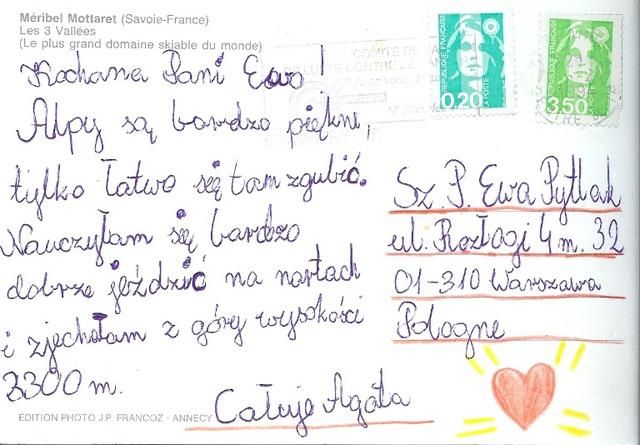 Méribel Mottaret (Savoie-France)
Les 3 Vallées
(Le plus grand domaine skiable du monde)
Kochana Pani Ewo!
Alpy są bardzo piękne,
tylko łatwo się tam zgubić.
Nauczyłam się bardzo
dobrze jeździć na nartach
i zjechałam z góry wysokości
3300 m.
Całuję Agata
ÉDITION PHOTO J.P. FRANCOZ - ANNECY
RÉPUBLIQUE FRANÇAISE
0,20
LA POSTE
RÉPUBLIQUE FRANÇAISE
3,50
LA POSTE
Sz. P. Ewa Pytlak
ul. Rozłogi 4 m. 32
01-310 Warszawa
Pologne